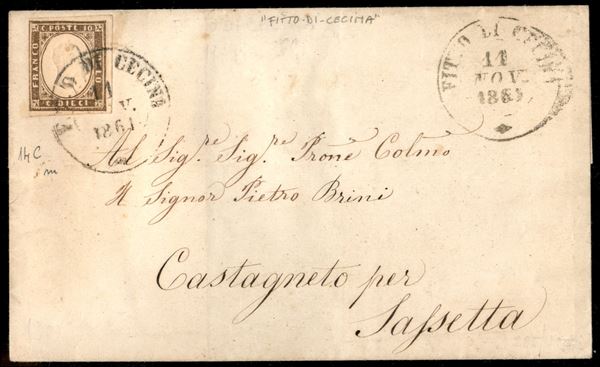 "FITTO-DI-CECINA"
C. POSTE 10
FRANCO
BOLLO
C. DIECI
DI CECINA
11
V.
1861
FITTO DI CECINA
11
NOV.
1861
14C
m
Al Sig.re Sig.re Prone Colmo
Il Signor Pietro Brini
Castagneto per
Sassetta